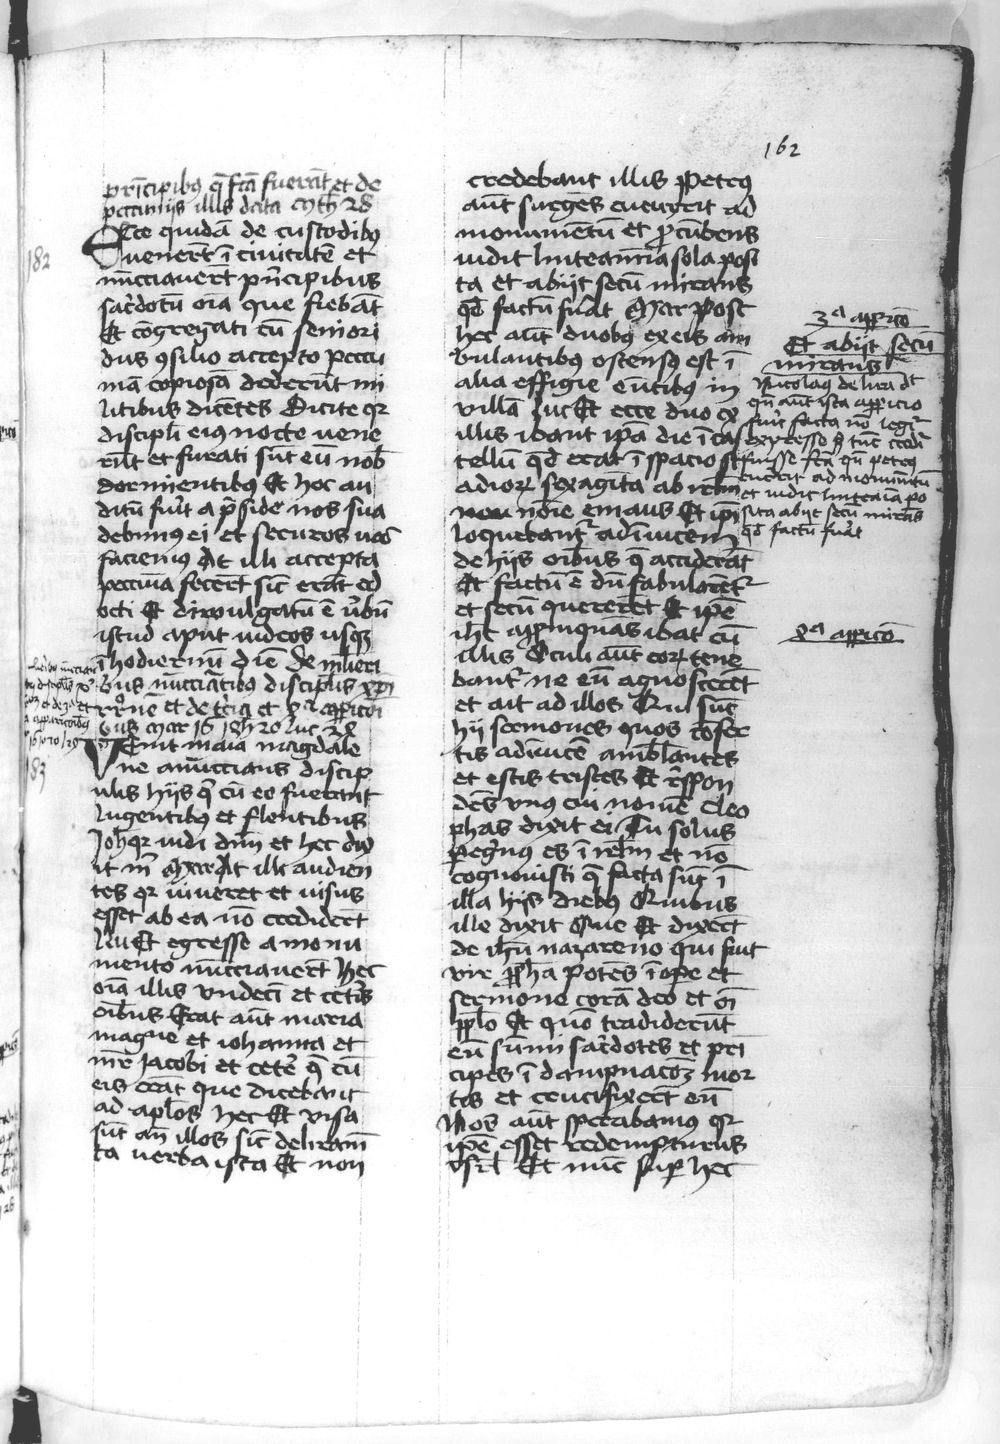 162
principibus q̄ fc̄a fuerūt et de
pecuniis illis data Mth 28
182
Ecce quidā de custodibꝰ
venerūt ī ciuitatē et
nūcciauerūt pͥncipibus
sac̄dotū oīa que fiebāt
Et cōgregati cū seniori
bus ꝯsilio accepto peccu
niā copiosā dederūt mi
litibus dicētes Dicite qr
discipli eius nocte uene
rūt et furati sūt eū nob̄
dormientibus Et hoc au
ditū fūit a p̄side nos sua
debimus ei et securos uos
faciemus At illi accepta
peccuīa fecerūt sic̄ erāt ed
octi Et diwulgatū ē ūbū
istud aput iudeos usqꝫ
ī hodiernū diē De mulieri
bus nūcciātibus disciplis xpi
et de ꝑcia et appicōi
bus Mar 16 Joh 20 luc 24
183
Venit maīa magdale
ne annūccians discip
ulis hijs q̄ cū eo fuerant
lugentibus et flentibus
Johqr uidi dnm et hec dix
it m̄ Mar At illi audien
tes qr uiueret et uisus
esset ab ea nō crediderūt
Luc Et egresse a monu
mento nūcciauerūt hec
oīa illis vndecī et ceteris
oībus Erat aūt maria
magne et iohanna et
mr̄ Jacobi et ceteͬ q̄ cū
eis erāt que dicebant
ad aplos hec Et visa
sūt an̄ illos sic̄ deliramē
ta uerba ista Et non
credebant illis Petrꝰ
aūt surges cucurrit ad
monumentū et ꝓcūbens
uidit linteamīa sola posi
ta et abijt secū mirans
qd̄ factū fuāt Mar Post
hec aūt duobꝰ ex eis am
bulantibꝰ ostensꝰ est ī
alia effigie eūtibꝰ in
villā Luc Et ecce duo ex
illis ibant ipā die ī cas
tellū qd̄ erat ī spacio st
adiorꝫ sexagīta ab irlm
noīe emaus Et ipi
loquebant̄ adīnuicem
de hijs oībus q̄ acciderāt
Et factū ē dū fabularēt̄
et secū quererēt Et ipē
ihc appīnquās ibat cū
illis Oculi aūt eorꝫ tene
bant̄ ne eū agnoscerēt
et ait ad illos Qui sūt
hij sermones quos cōfer
tis adīuicē amblantes
et estis tristes Et r̄spon
dēs vnus cui nomē Cleo
phas dixit ei Tu solus
peg̓nus es ī irlm et nō
cognouisti q̄ facta sūt ī
illa hijs diebꝰ Quibus
ille dixit Que Et dixerūt
de ihū nazareno qui fuit
vir ꝓpha potēs ī ope et
sermone corā deo et oī
pplo Et quō tradiderūt
eū sūmi sac̄dotes et prī
cipes ī dampnacōeꝫ mor
tis et crucifixerūt eū
Nos aūt sperabamus qr
ipē esset redempturus
isrl Et nūc suꝑ hec
3ª appicō
Et abijt secū
mirans
Nicolaus de lira dt
qn̄ aut ista appicio
fuͥt facta nō legit̄
expresse s̄ tūc cred̄it̄
fuisse fcā qn̄ petrꝰ
cucurit ad monumētū
et uidit linteaīa po
sita abijt secū mirās
qd̄ factū fuāt
4ª appicō